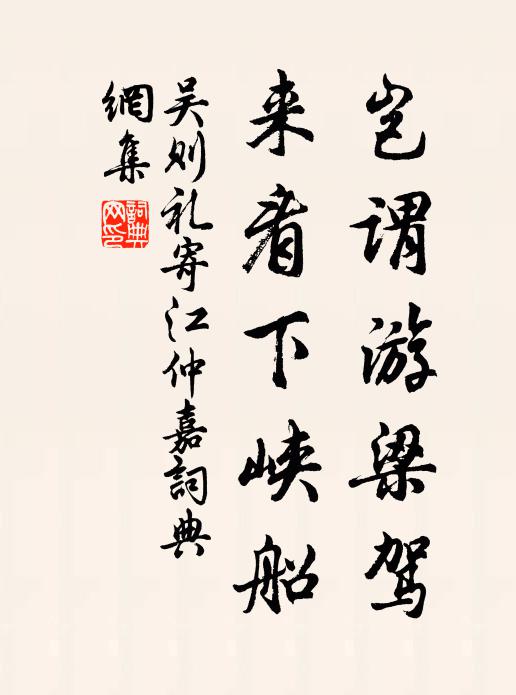 岂谓游梁驾
来看下峡船
吴则礼寄江仲嘉詞典
網集
詞典
网印